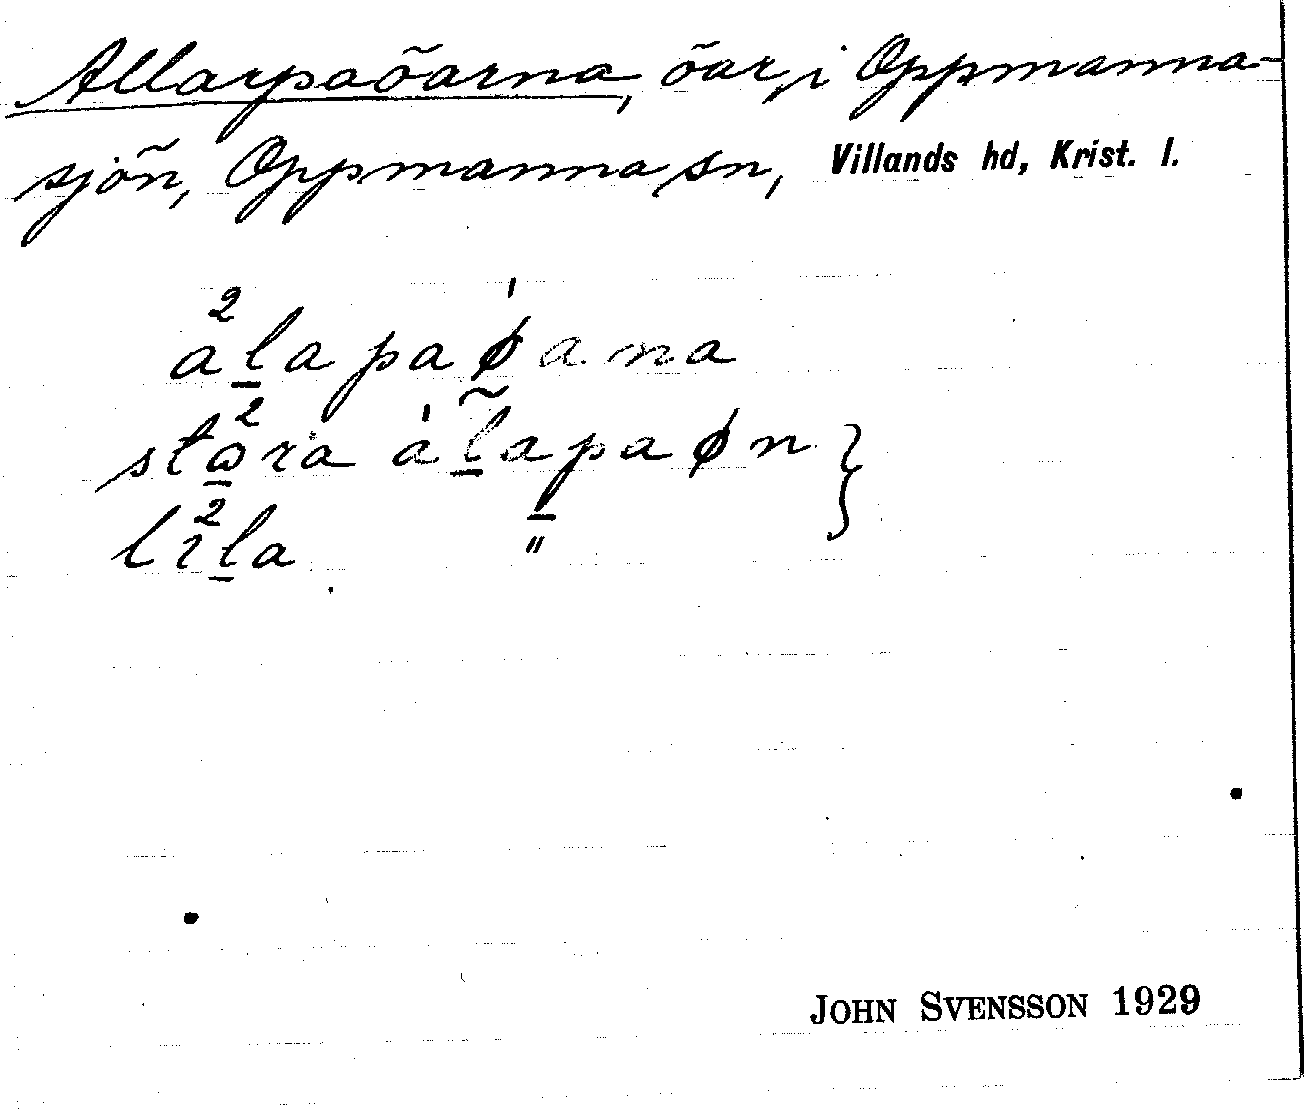 Allarpaöarna, öar, i Oppmanna-
sjön, Oppmanna sn, Villands hd, Krist. l.
a²l̲apaø¹ana
stω̲²ra a¹l̲̃apaøn }
lı²l̲a "
JOHN SVENSSON 1929